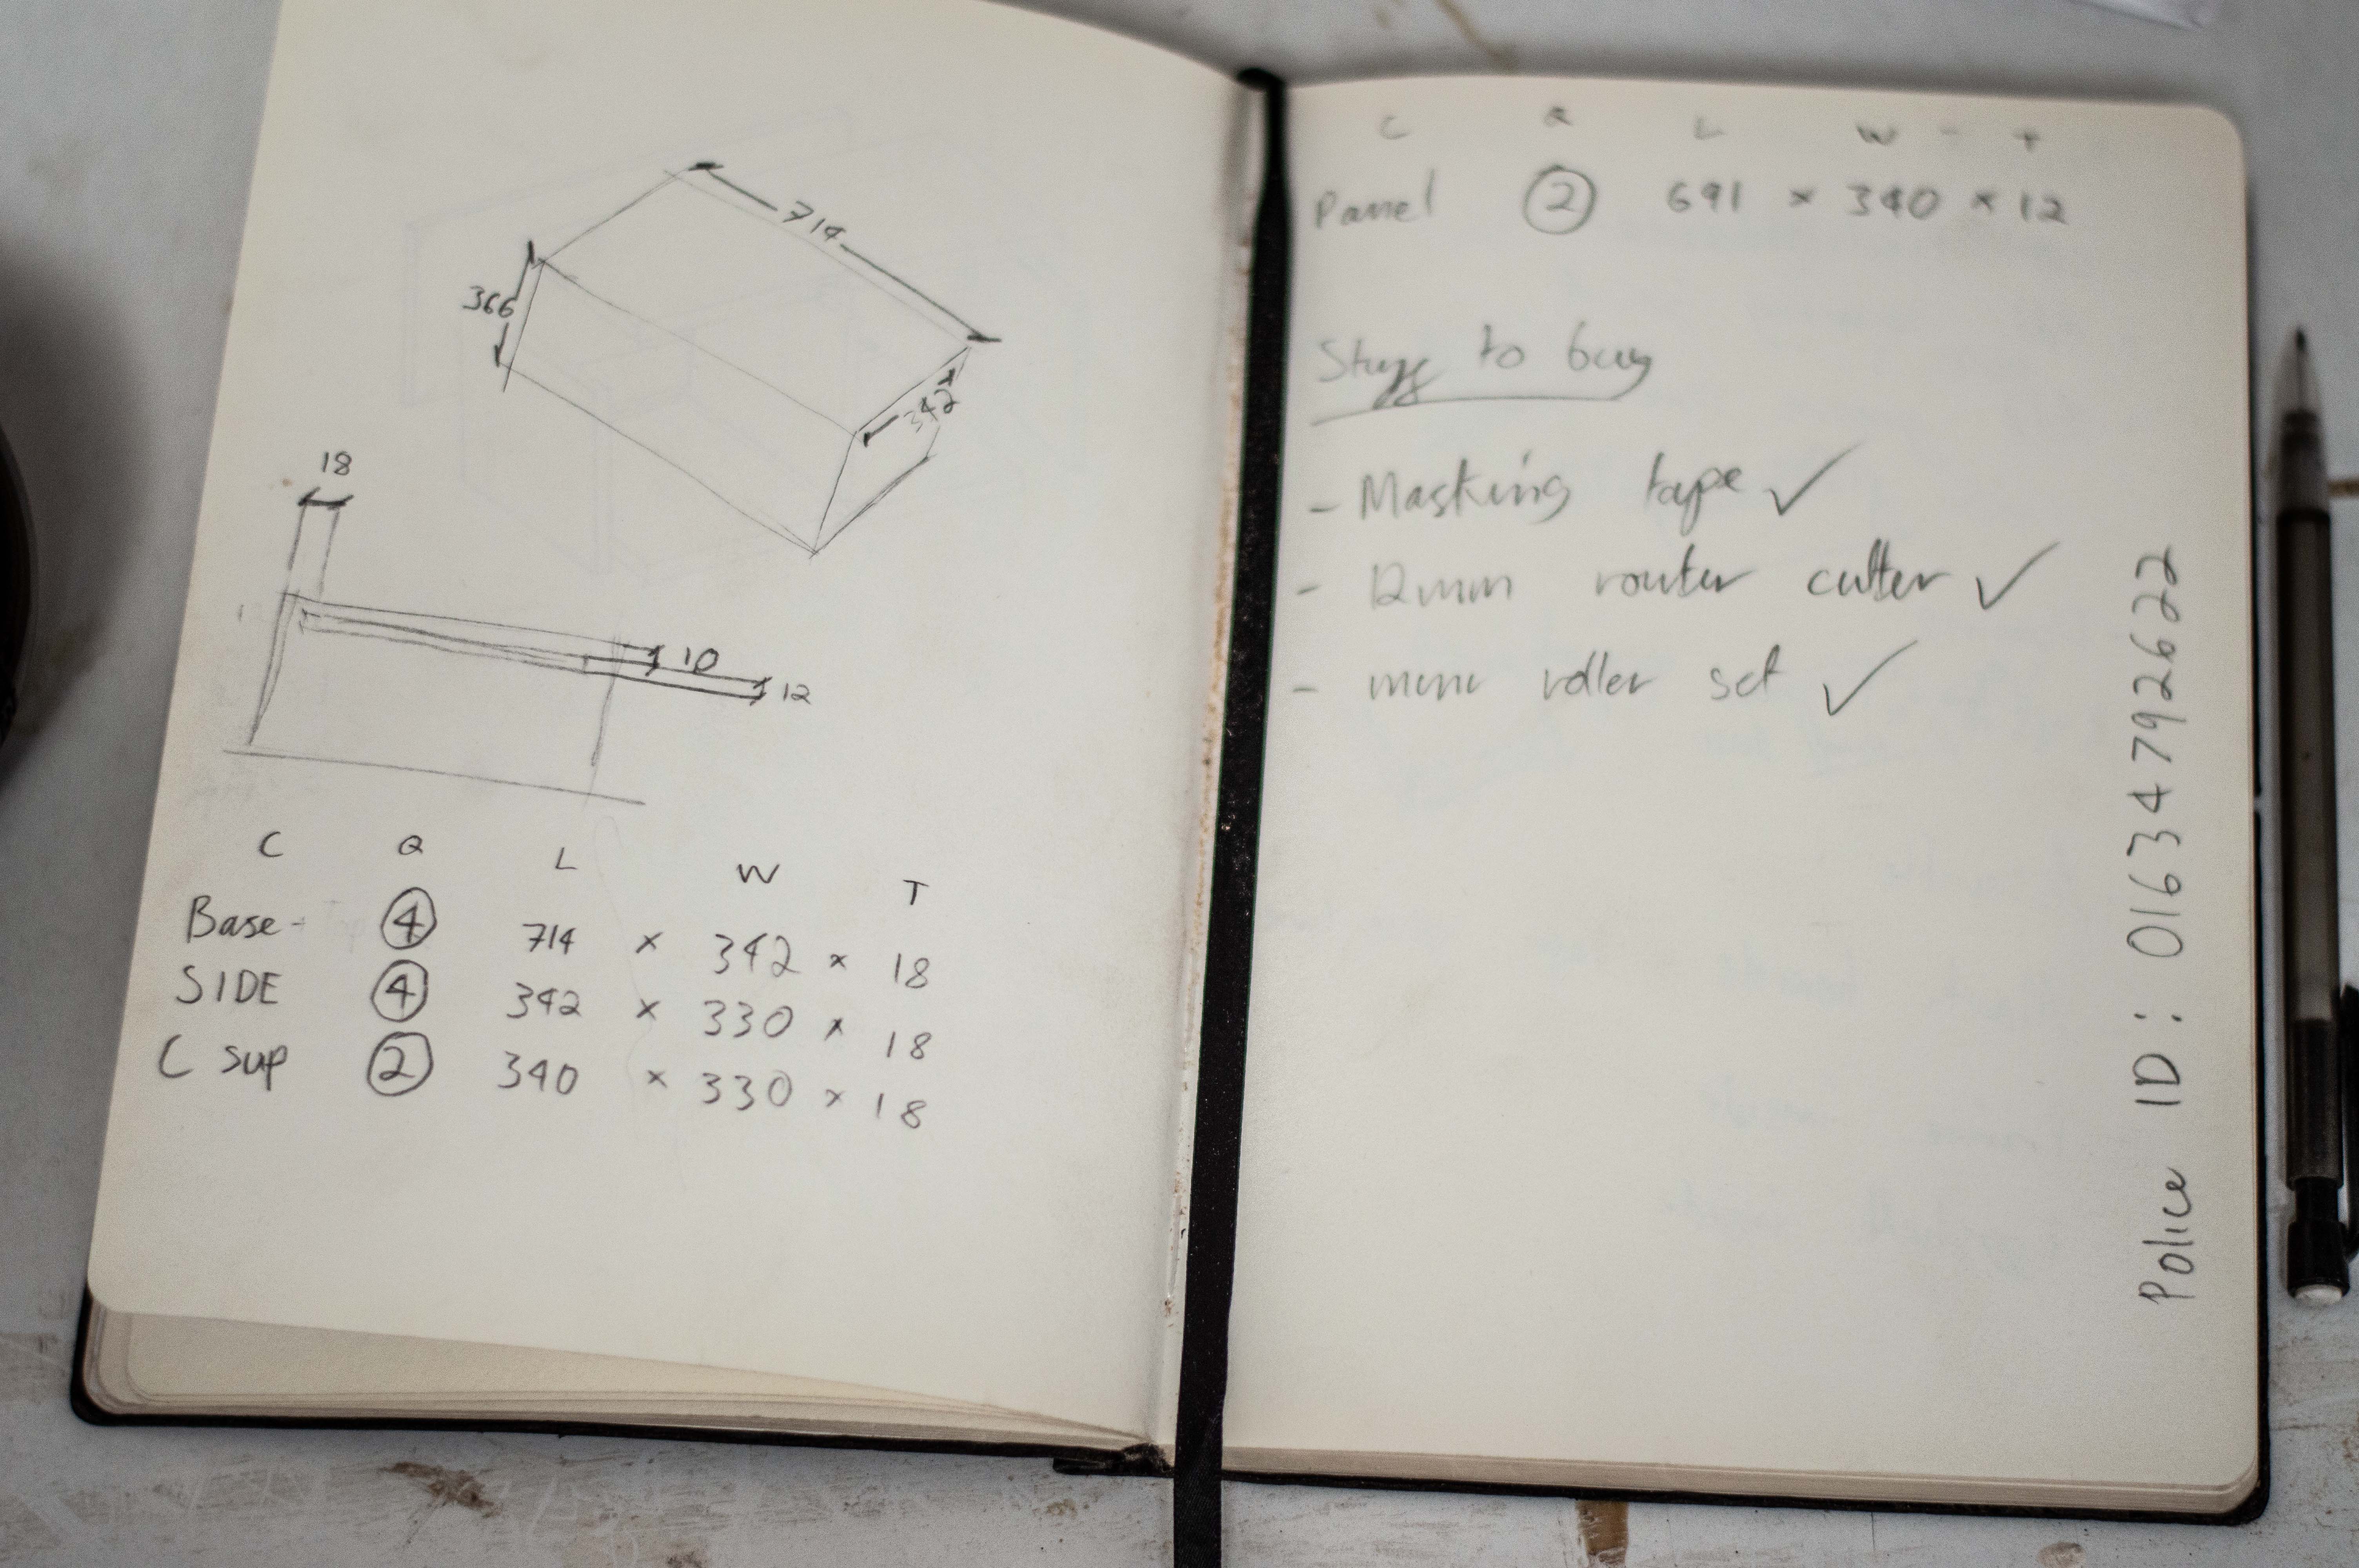 714
366
342
18
10
12
C Q L W T
Base - 4 714 x 342 x 18
SIDE 4 342 x 330 x 18
C sup 2 340 x 330 x 18
C Q L W - T
Panel 2 691 x 340 x 12
Stuff to buy
- Masking tape ✓
- 12mm router cutter ✓
- mini roller set ✓
Police ID: 01634792622